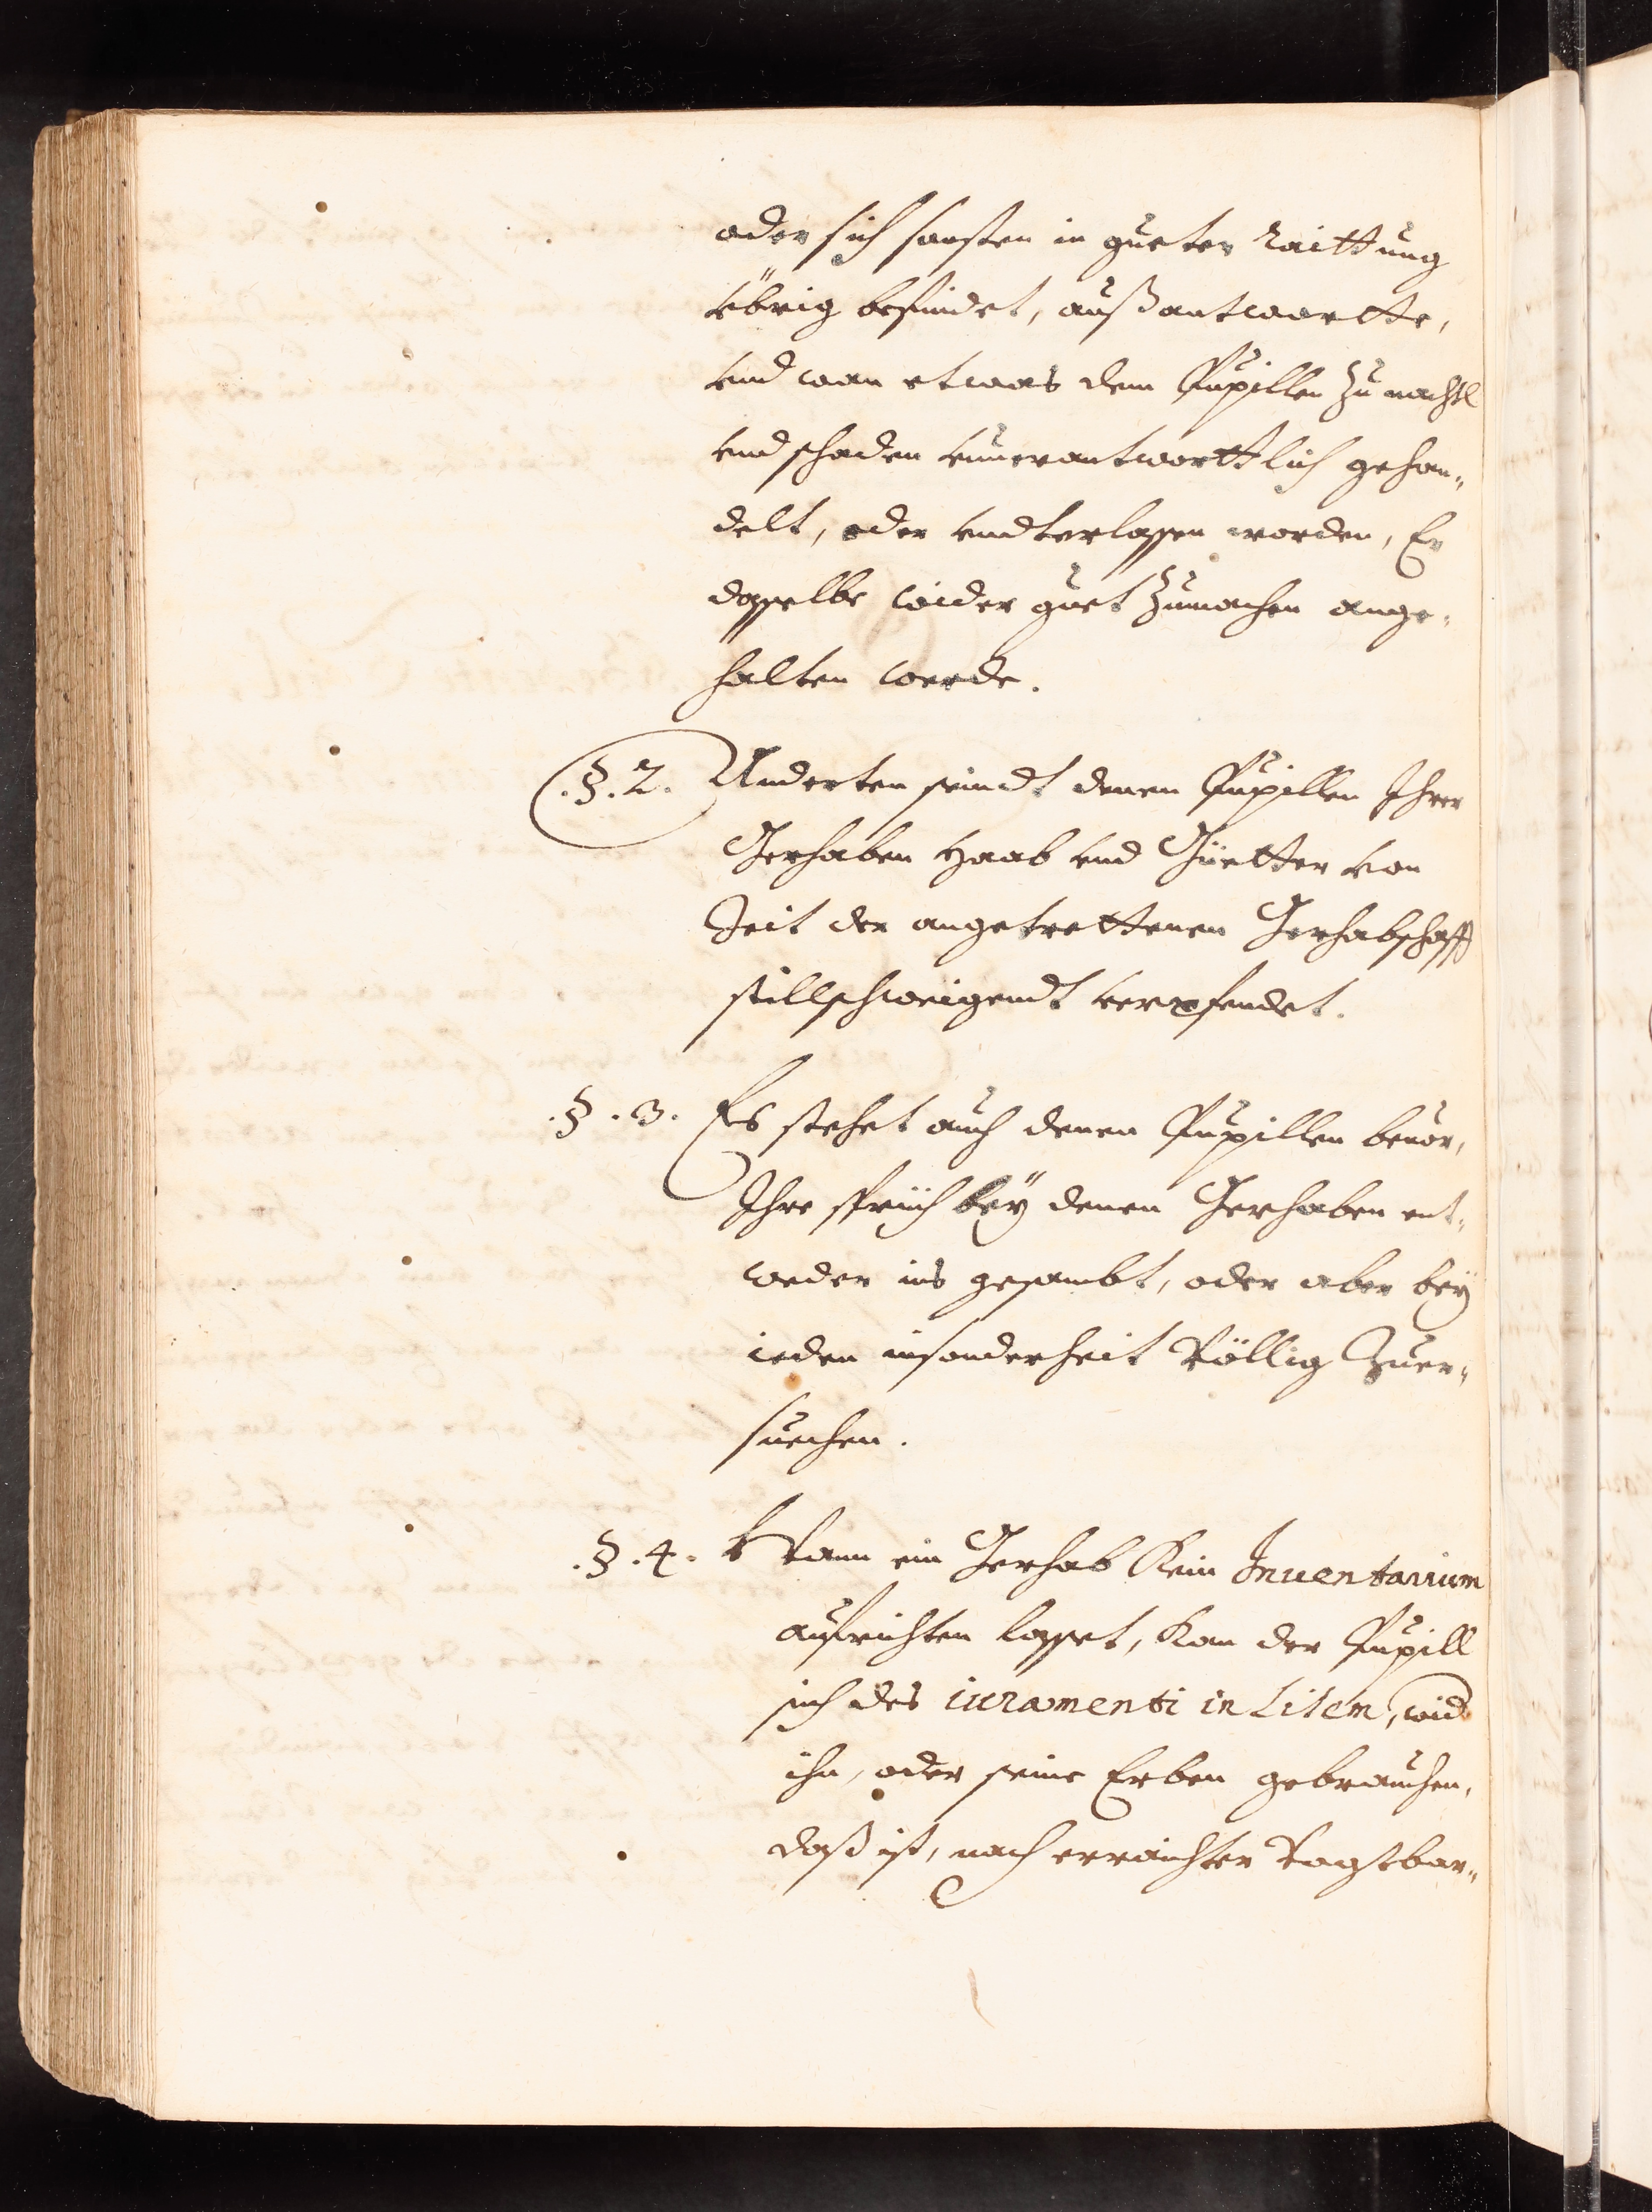 oder sich sonsten in gueter raittung
vbrig befindet, außantwortte,
vnd wan etwas dem Pupillen zu nachtl
vnd schaden vnuerantworttlich gehan„
delt, oder vndterlassen worden, Er
dasselbe wider guet zumachen ange„
halten werde.
.§.2. Anderten seindt denen Pupillen Ihrer
Gerhaben Haab vnd Güetter von
Zeit der angetrettenen Gerhabschafft
stillschweigendt verpfendet.
.§.3. Es stehet auch denen Pupillen beuor,
Ihre sprüch beÿ denen Gerhaben ent„
weder ins gesambt, oder aber beÿ
ieden insonderheit Völlig Zuer„
suechen.
.§.4. Wann ein Gerhab Kein Inuentarium
aufrichten lasset, Kan der Pupill
sich des iuramenti in Litem, wid
ihn, oder seine Erben gebrauchen,
daß ist, nach erraichter Vogtbar„